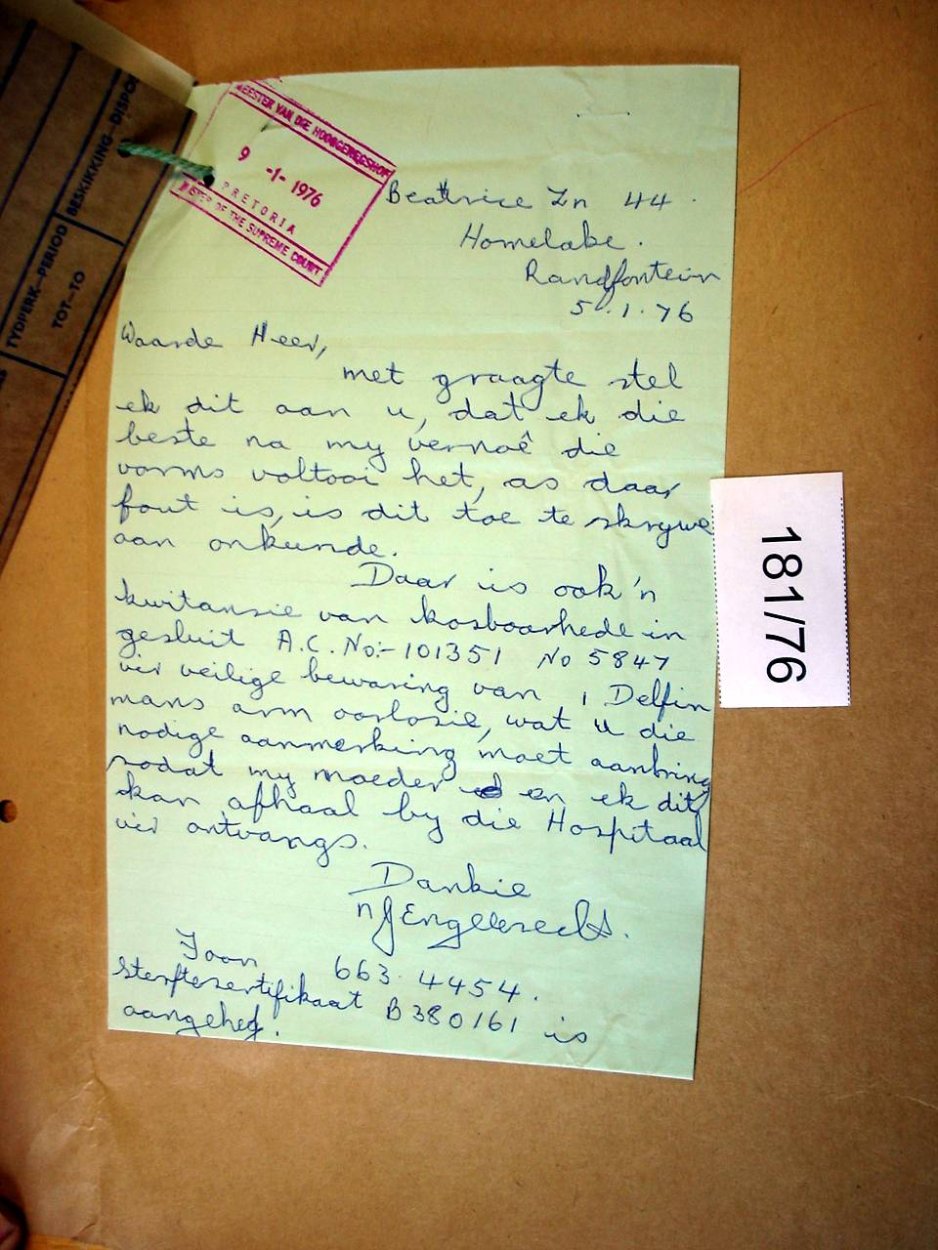 BESKIKKING—DISPO
TYDPERK—PERIOD
TOT—TO
MEESTER VAN DIE HOOGGEREGSHOF
9 -1- 1976
PRETORIA
MASTER OF THE SUPREME COURT
Beatrice Ln 44.
Homelake.
Randfontein
5.1.76
Waarde Heer,
met graagte stel
ek dit aan u, dat ek die
beste na my vernoê die
vorms voltooi het, as daar
fout is, is dit toe te skrywe
aan onkunde.
Daar is ook 'n
kwitansie van kosbaarhede in
gesluit A.C. No:- 101351 No 5847
vir veilige bewaring van 1 Delfin
mans arm oorlosie, wat u die
nodige aanmerking moet aanbring
sodat my moeder en ek dit
kan afhaal by die Hospitaal
vir ontvangs.
Dankie
Engelbrecht.
Foon 663 4454.
Sterftesertifikaat B380161 is
aangeheg.
181/76